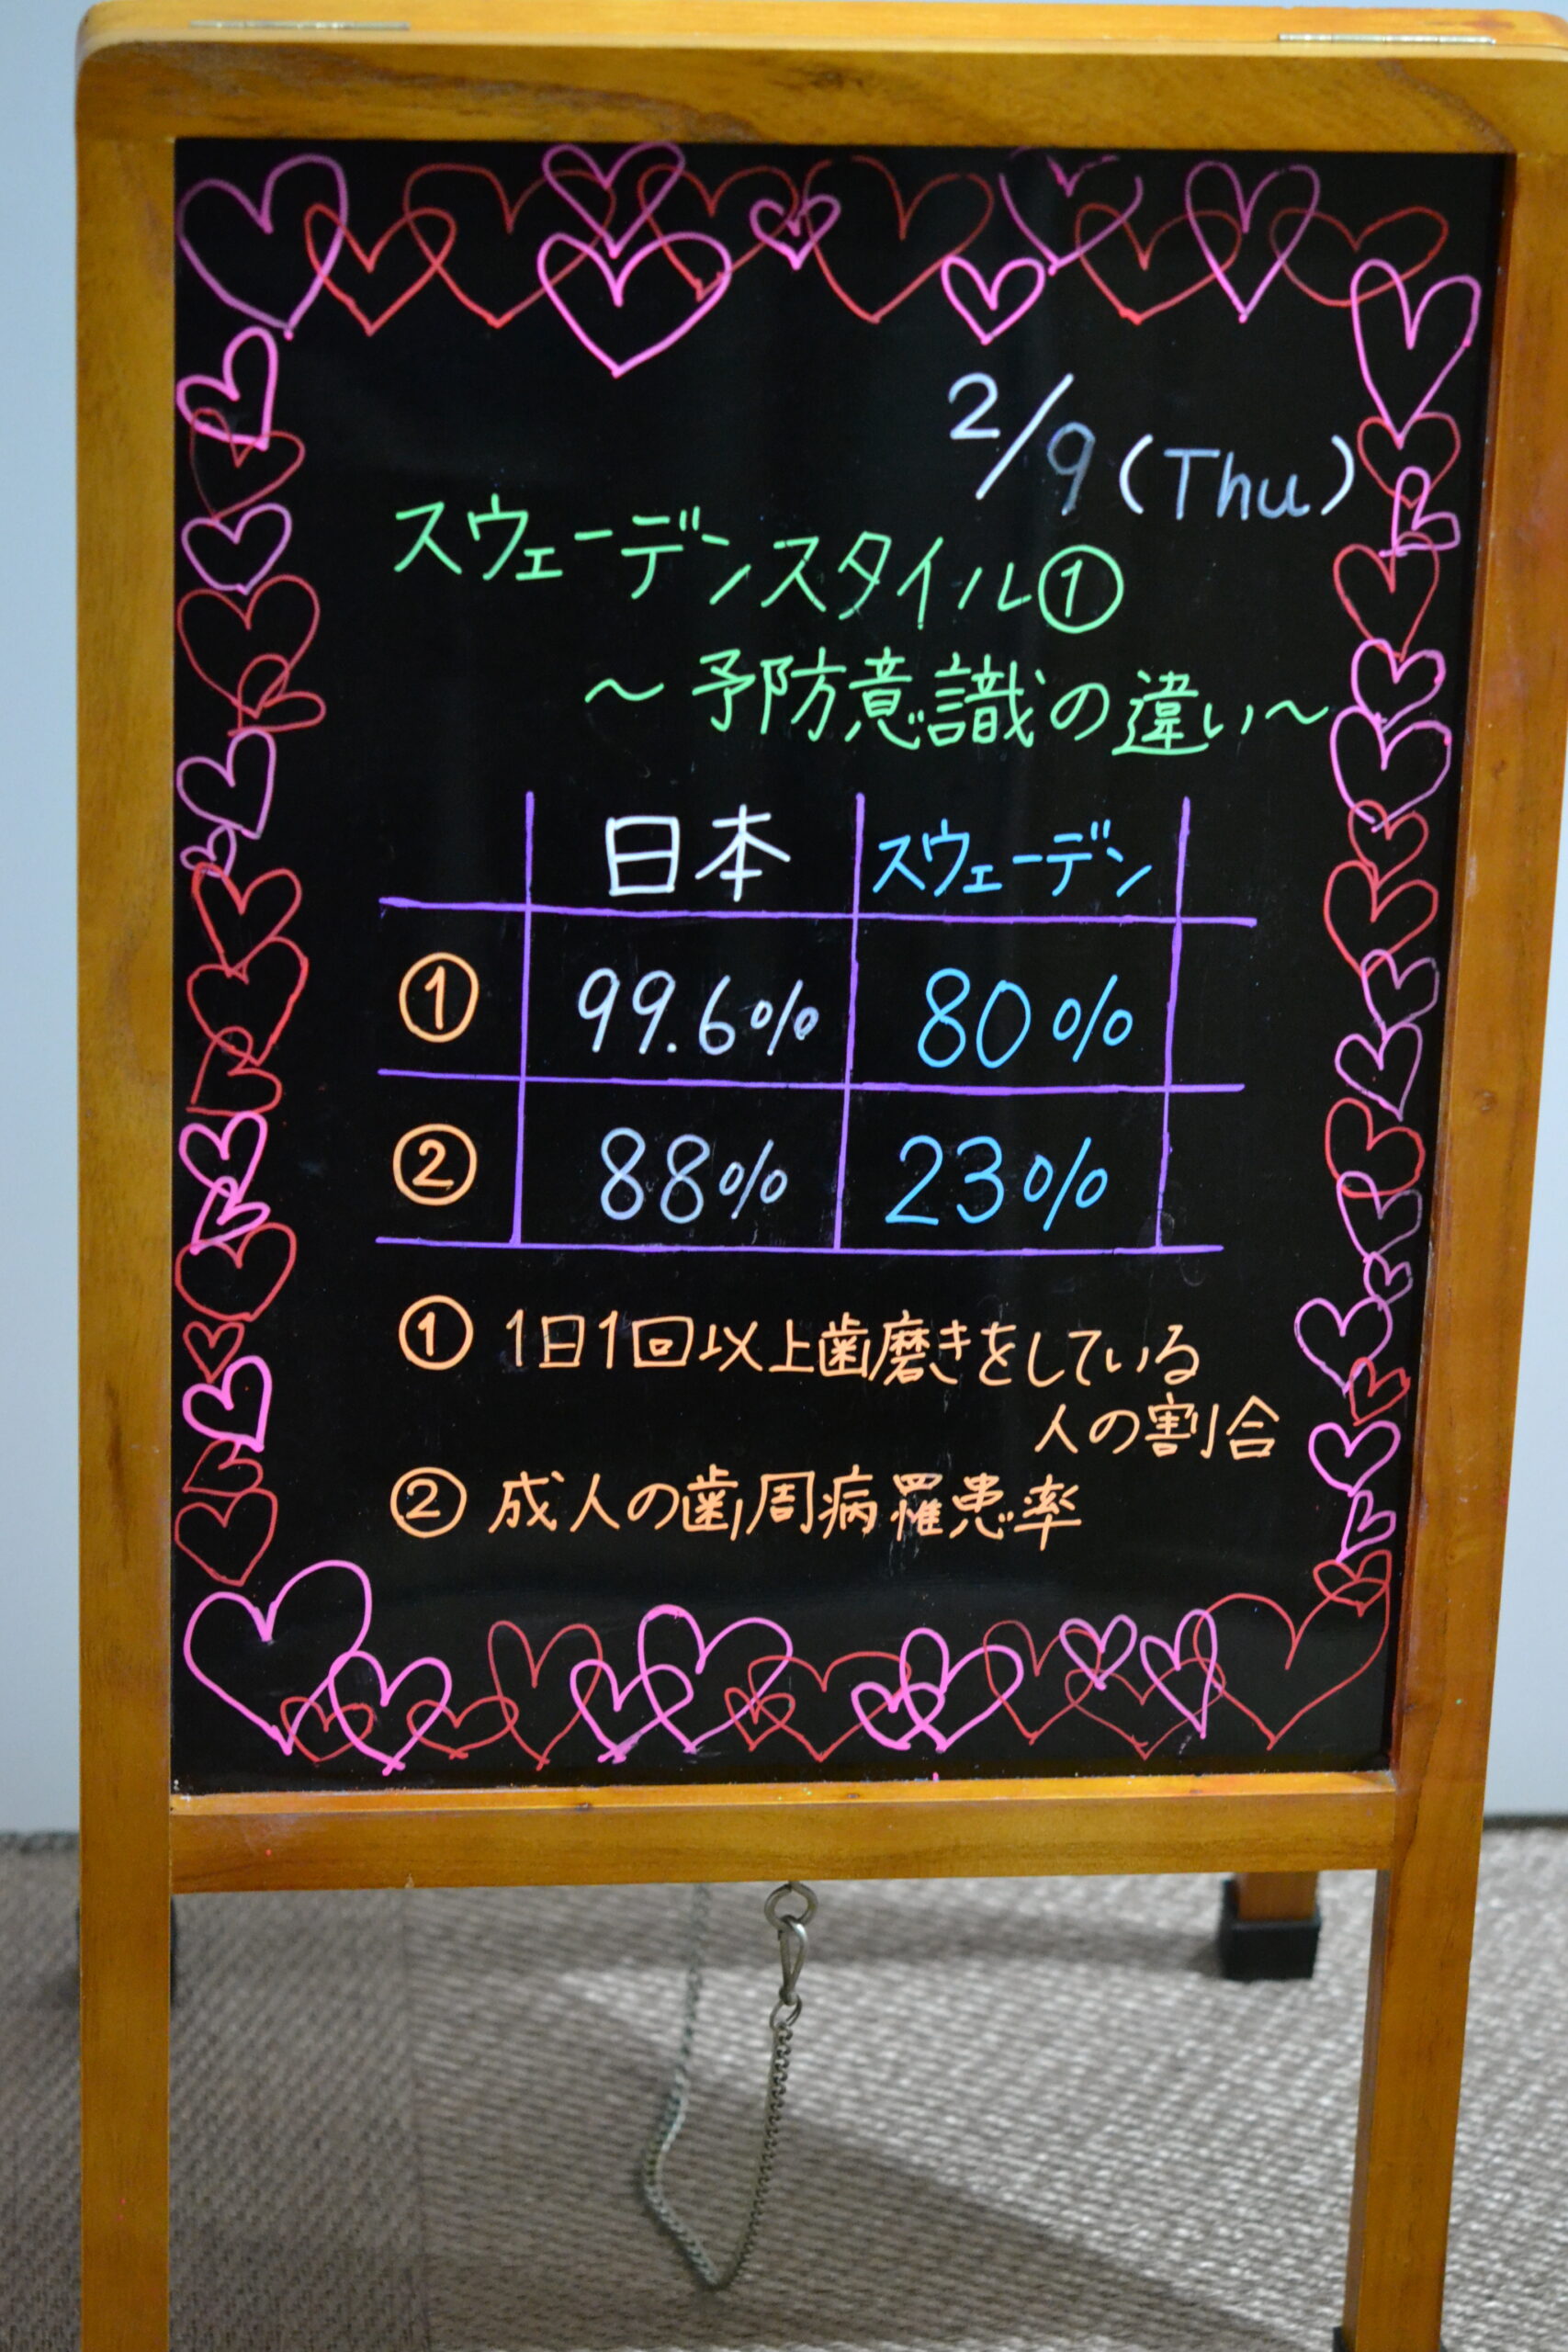 2/9(Thu)
スウェーデンスタイル①
～予防意識の違い～
日本 スウェーデン
① 99.6% 80%
② 88% 23%
① 1日1回以上歯磨きをしている
人の割合
② 成人の歯周病罹患率